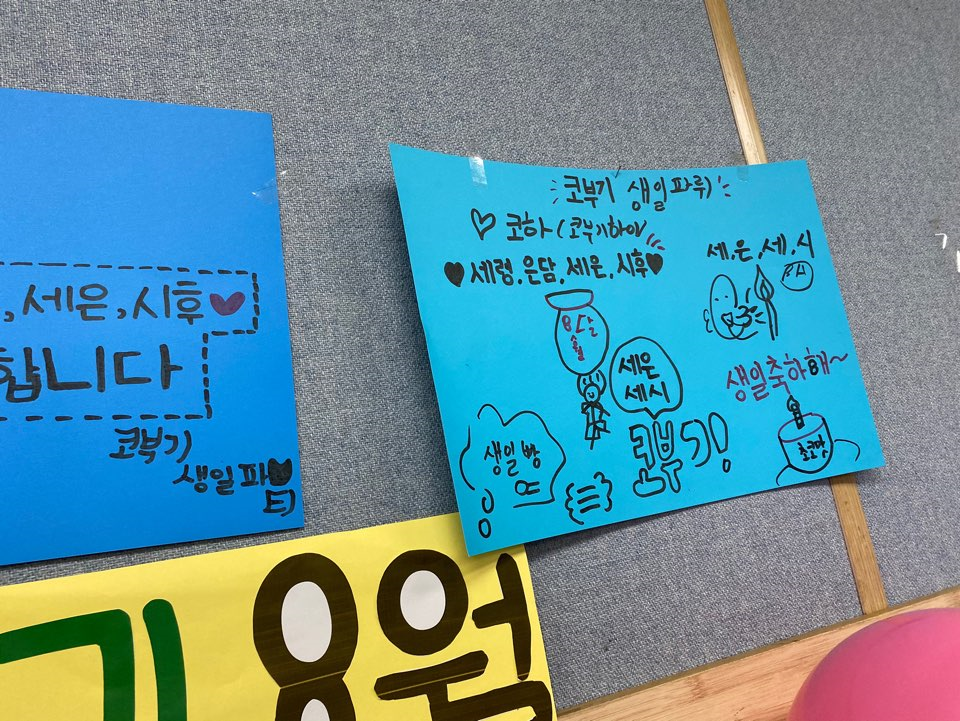 ,세은,시후
합니다
코부기
생일파티
코부기 생일파뤼
코하(코부기하이
세렁.은담.세은.시후
세.은.세.시
8월
세은
세시
생일축하해~
생일빵
코부기!
초코맛
기 8월